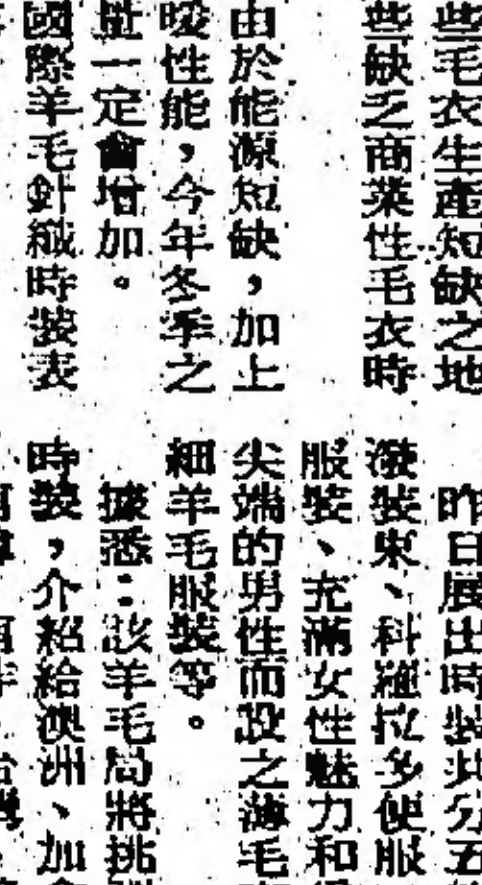 些毛衣生產短缺之地
些缺乏商業性毛衣時
由於能源短缺，加上
暖性能，今年冬季之
量一定會增加。
國際羊毛針織時裝表
昨日展出時裝共分五
潑裝束、科羅拉多便服
服裝、充滿女性魅力和
尖端的男性而設之薄毛
細羊毛服裝等。
據悉：該羊毛局將挑
時裝，介紹給澳洲、加